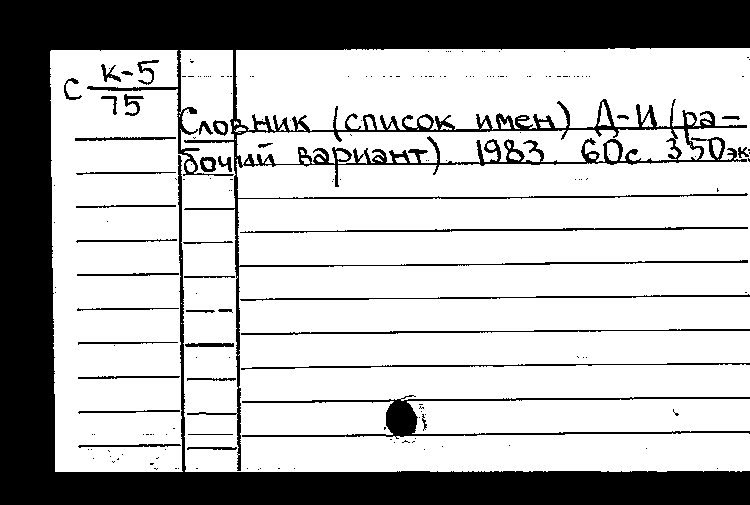 С К-5
75
Словник (список имен) Д-И (ра-
бочий вариант). 1983. 60с. 350эк